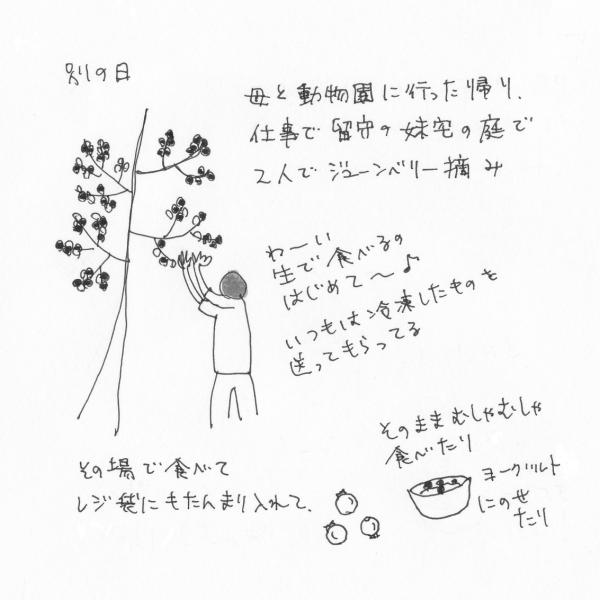 別の日
母と動物園に行った帰り、
仕事で留守の妹宅の庭で
2人でジューンベリー摘み
わ〜い
生で食べるの
はじめて〜♪
いつもは冷凍したものを
送ってもらってる
その場で食べて
レジ袋にもたんまり入れて、
そのままむしゃむしゃ
食べたり
ヨーグルト
にのせ
たり